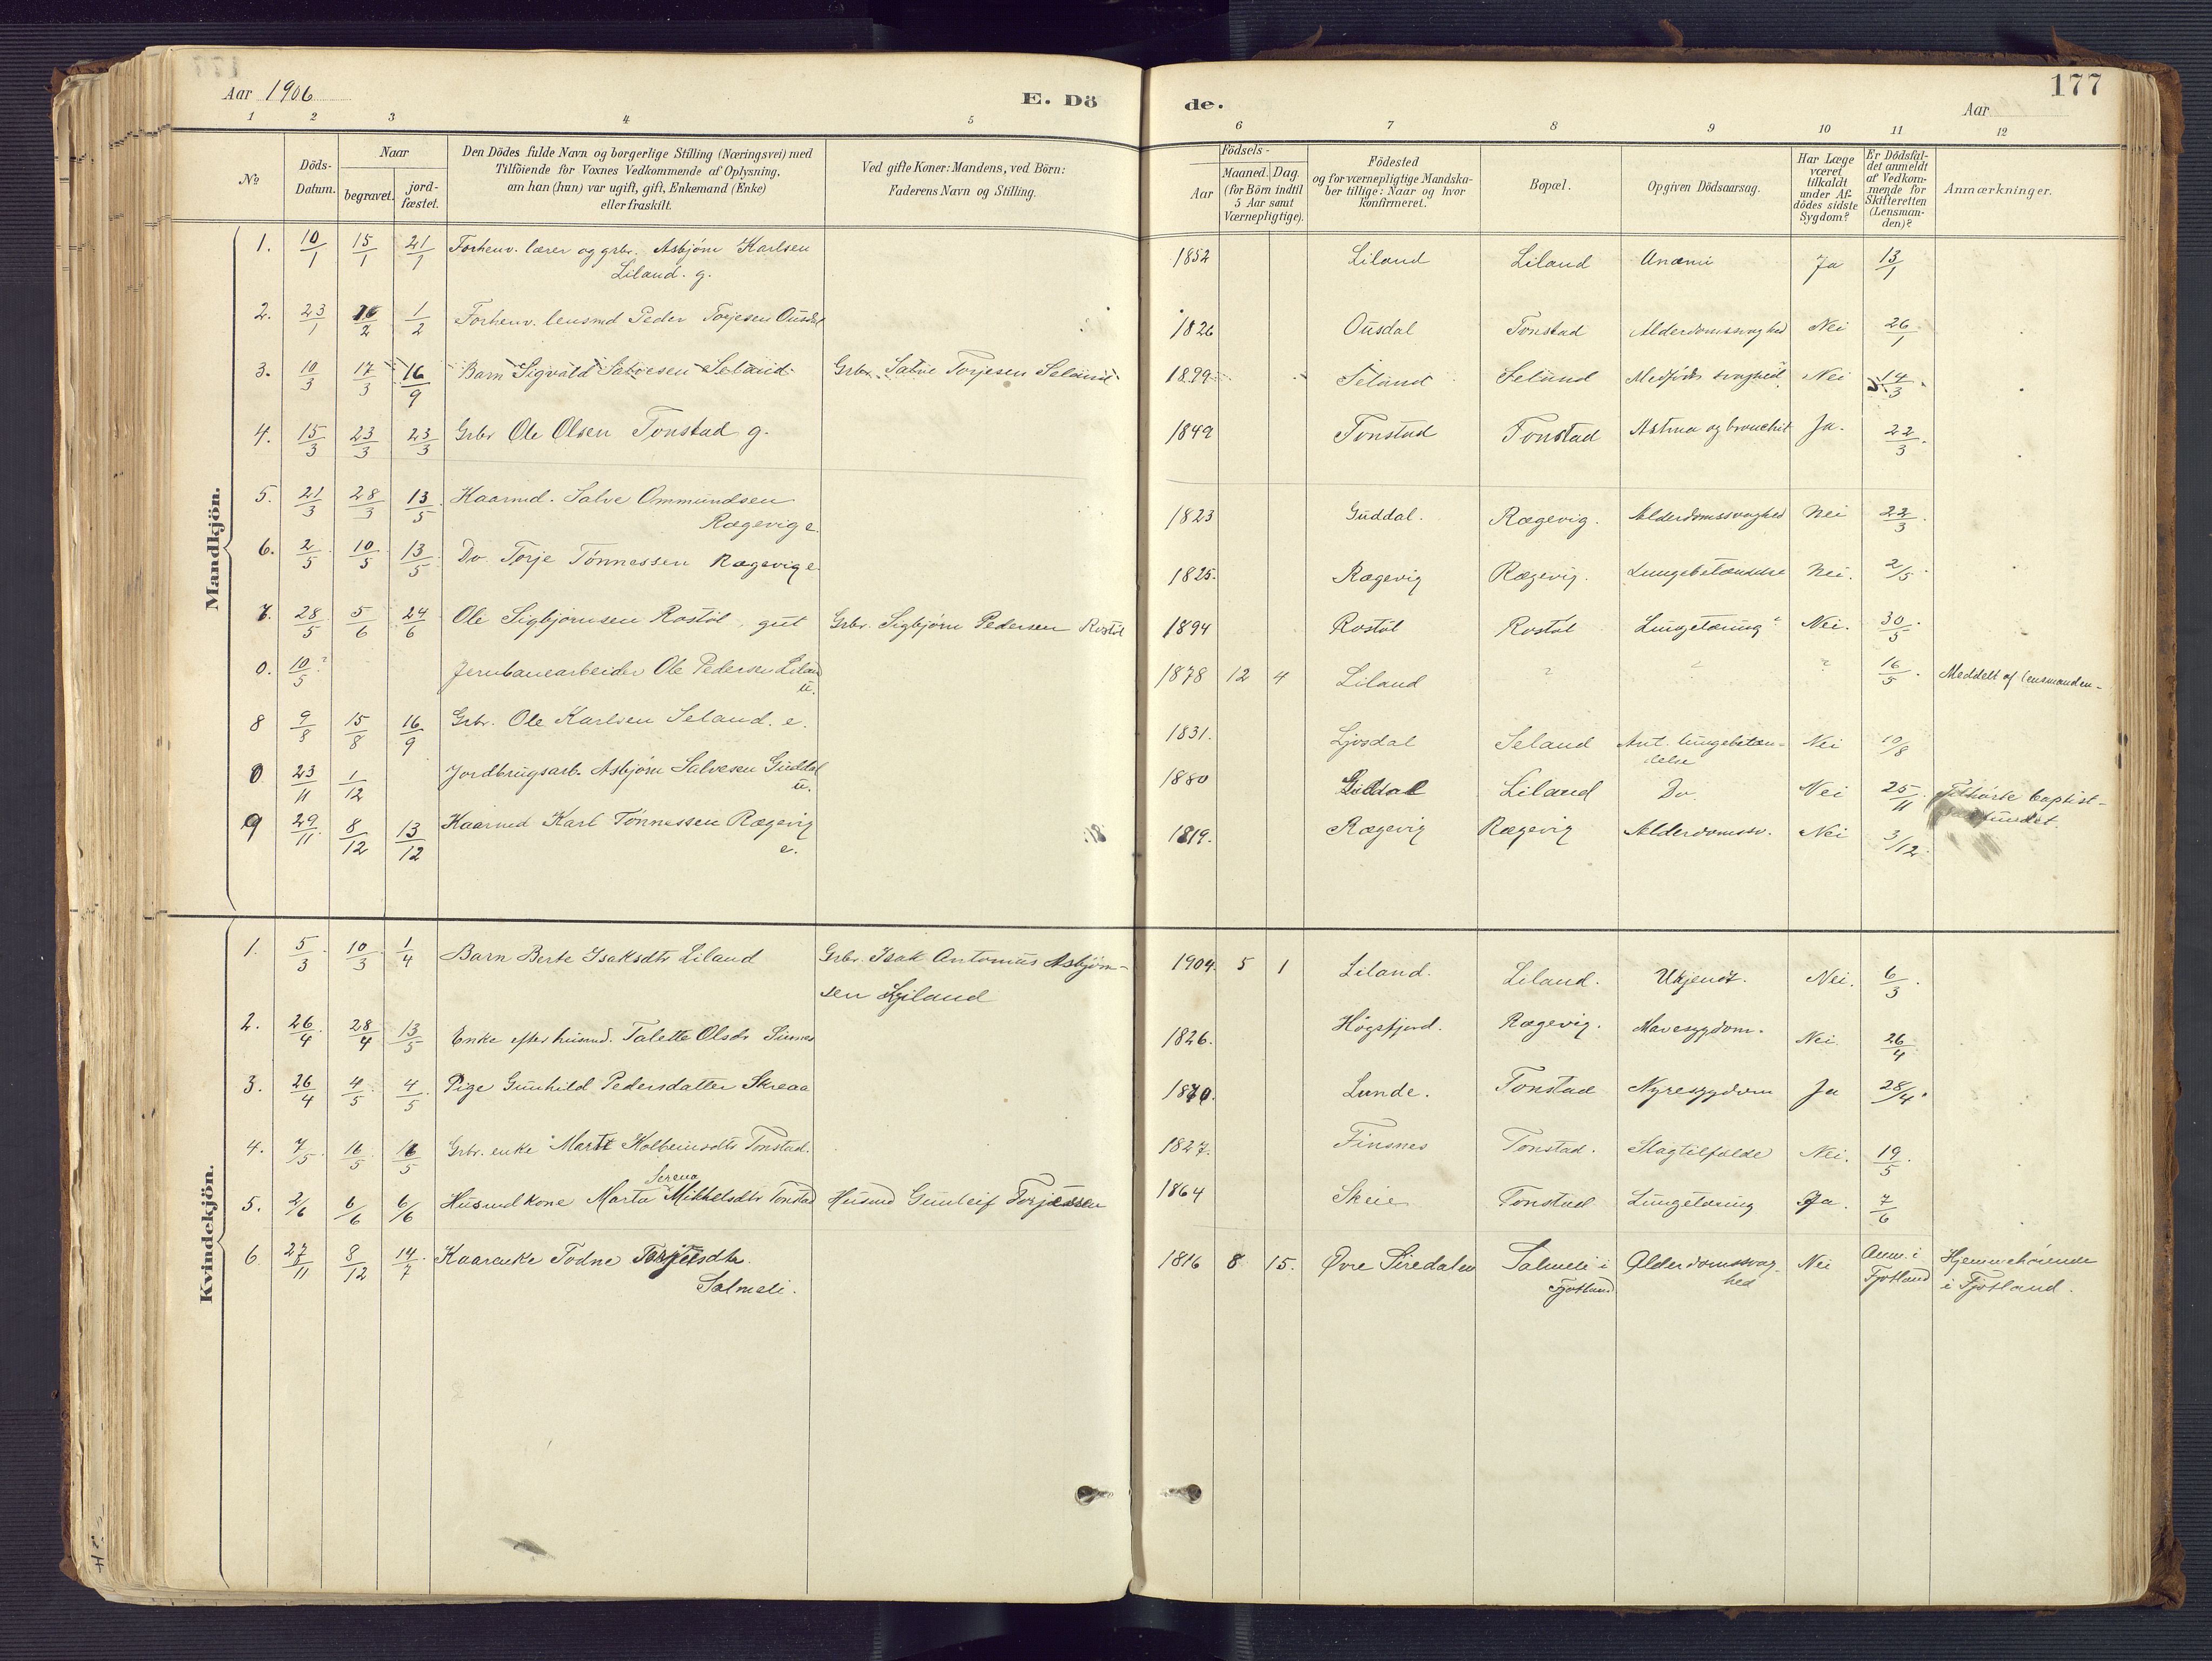 Aar 1906
E. Dö
de.
177
Aar
1 2 3 4 5 6 7 8 9 10 11 12
No
Döds-Datum.
Naar
begravet.
jord-fæstet.
Den Dödes fulde Navn og borgerlige Stilling (Næringsvei) med
Tilföiende for Voxnes Vedkommende af Oplysning,
om han (hun) var ugift, gift, Enkemand (Enke)
eller fraskilt.
Ved gifte Koner: Mandens, ved Börn:
Faderens Navn og Stilling.
Födsels-
Aar
Maaned. Dag.
(for Börn indtil
5 Aar samt
Værnepligtige).
Födested
og for værnepligtige Mandska-
ber tillige: Naar og hvor
Konfirmeret.
Bopæl.
Opgiven Dödsaarsag.
Har Læge
været
tilkaldt
under Af-
dödes sidste
Sygdom?
Er Dödsfal-
det anmeldt
af Vedkom-
mende for
Skifteretten
(Lensman-
den)?
Anmærkninger.
Mandkjön.
1. 10/1 15/1 21/1 Forhenv. lærer og grbr. Asbjörn Karlsen
Liland. g. 1852 Liland Liland Anæmi Ja 13/1
2. 23/1 /2 1/2 Forhenv. lensmd Peder Torjesen Ousdal 1826 Ousdal Tonstad Alderdomssvaghed Nei 26/1
3. 10/3 17/3 16/9 Barn Sigvald Salvesen Seland Grbr. Salve Torjesen Seland. 1899 Seland Seland Medfödt svaghed Nei 14/3
4. 15/3 23/3 23/3 Grbr Ole Olsen Tonstad g. 1849 Tonstad Tonstad Astma og bronchit Ja. 22/3
5. 21/3 28/3 13/5 Kaarmd. Salve Ommundsen
Rægevig e. 1823 Guddal. Rægevig. Alderdomssvaghed Nei 22/3
6. 2/5 10/5 13/5 Do Torje Tönnessen Rægevig e 1825. Rægevig Rægevig. Lungebetændelse Nei. 2/5
7. 28/5 5/6 24/6 Ole Sigbjörnsen Rostöl, gut Grbr. Sigbjörn Pedersen Rostöl 1894 Rostöl Rostöl Lungetæring? Nei. 30/5
0. 10/5? Jernbanearbeider Ole Pedersen Liland
u. 1878 12 4 Liland ? ? ? 16/5 Meddelt af lensmanden
8 9/8 15/8 16/9 Grbr. Ole Karlsen Seland. e. 1831. Ljosdal Seland Ant. lungebetæn-
delse Nei 10/8
0 23/11 1/12 Jordbrugsarb. Asbjörn Salvesen Guddal
u. 1880 Guddal Liland Do Nei 25/11 Tilhörte baptist-
9 29/11 8/12 13/12 Kaarmd Karl Tönnessen Rægevig
e. 1819. Rægevig Rægevig Alderdomssv. Nei 3/12
Kvindekjön.
1. 5/3 10/3 1/4 Barn Berte Isaksdtr Liland Grbr. Isak Antonius Asbjörn-
sen Liland 1904 5 1 Liland. Liland. Ukjendt. Nei. 6/3
2. 26/4 28/4 13/5 Enke efter husmd. Talette Olsdtr Sinnes 1826. Högsfjord. Rægevig. Mavesygdom. Nei 26/4
3. 26/4 4/5 4/5 Pige Gunhild Pedersdatter Skreaa 1870. Lunde. Tonstad Nyresygdom Ja 28/4
4. 7/5 16/5 16/5 Grbr. enke Marte Kolbeinsdtr Tonstad. 1827. Finsnes Tonstad. Slagtilfælde Nei. 19/5
Serena
5. 2/6 6/6 6/6 Husmdkone Marta Mikkelsdtr Tonstad Husmd Gunleif Torjessen 1864 Skeie Tonstad Lungetæring Ja. 7/6
6 27/11 8/12 14/7 Kaarenke Todne Torjelsdtr.
Salmeli. 1816 8 15. Øvre Siredalen Salmeli i
Fjotland Alderdomssvag-
hed Nei Anm. i
Fjotland Hjemmehörende
i Fjotland.